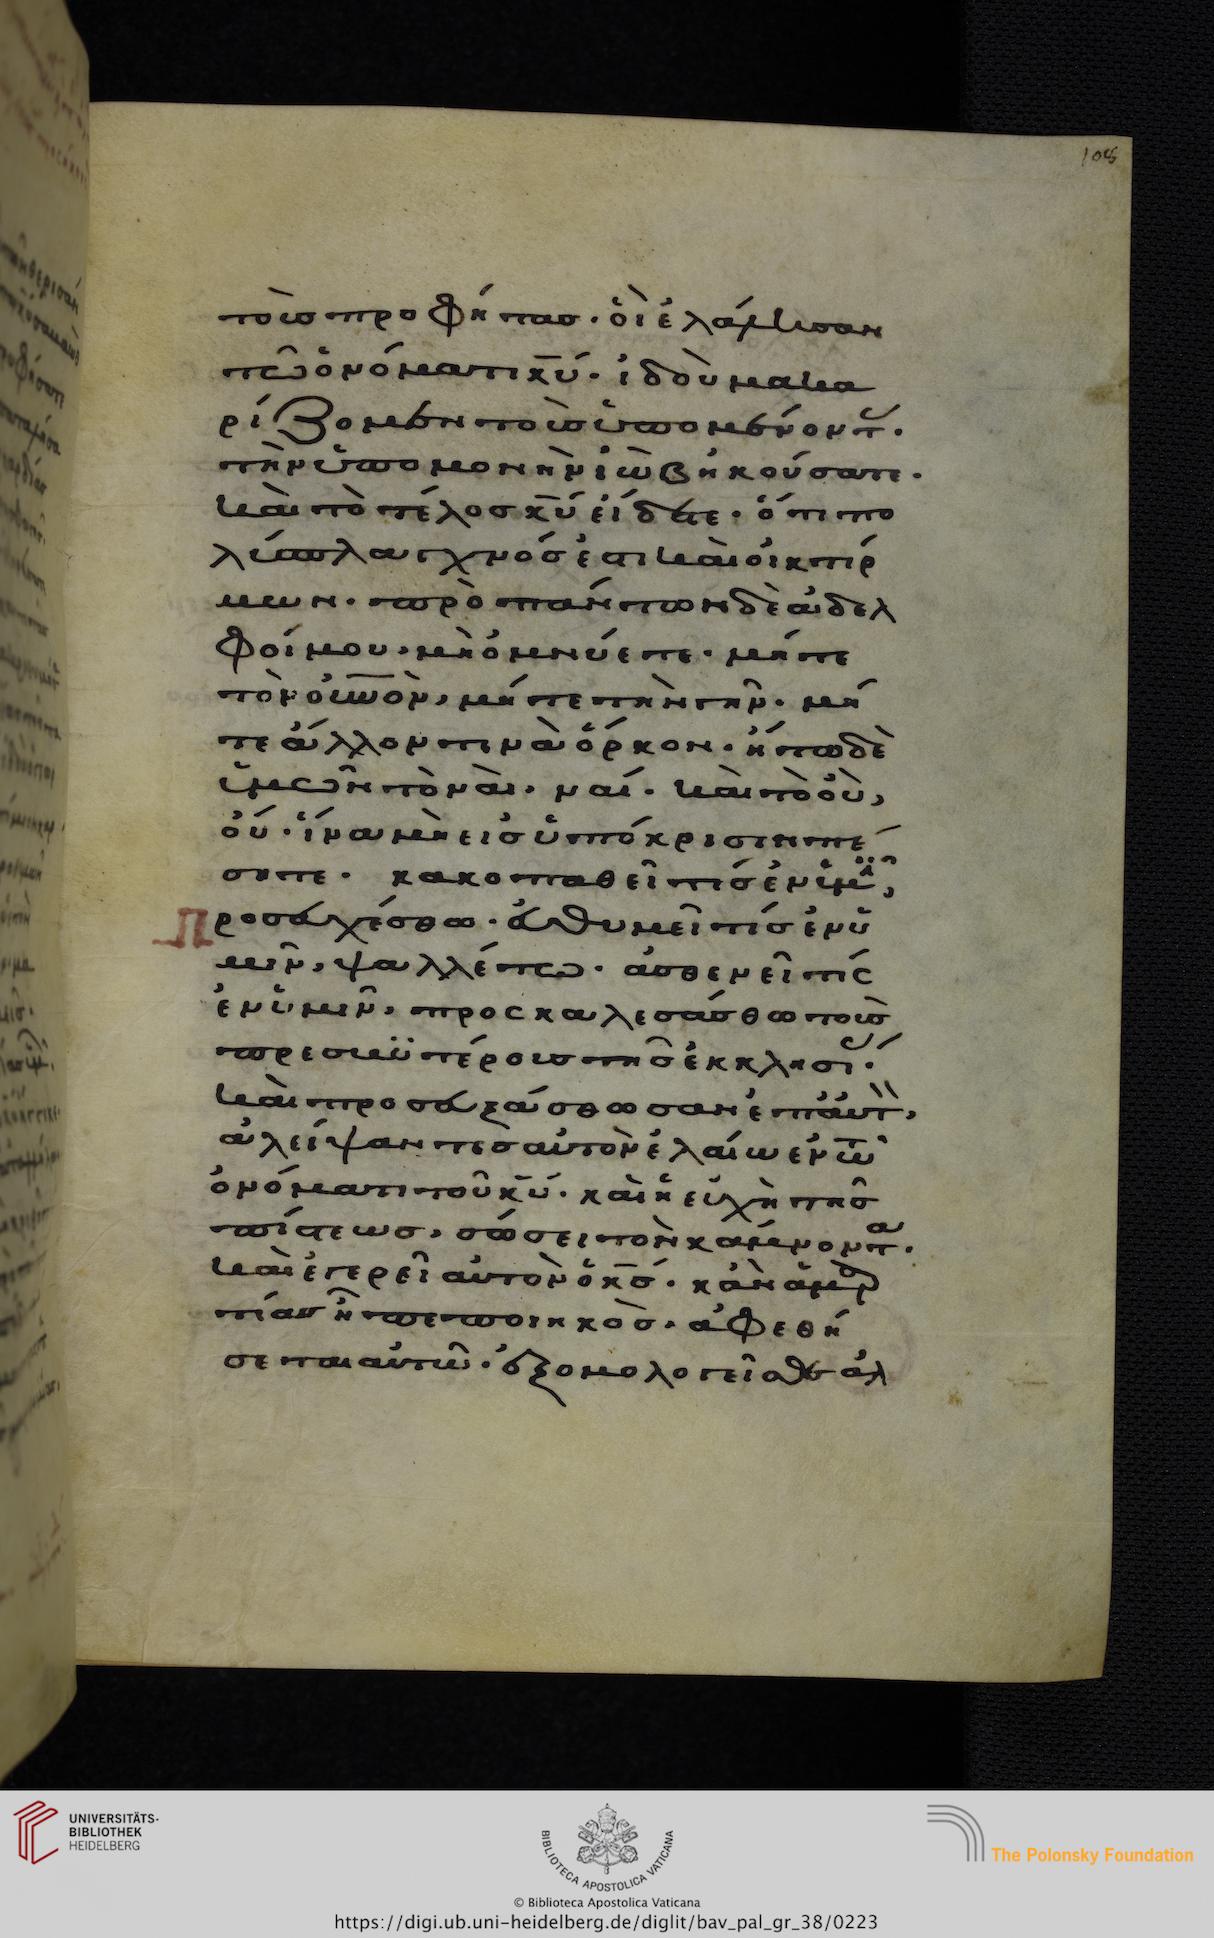 108
τοὺσ προφήτασ· οἳ ἐλάλησαν
τῶ ὀνόματι κ̅υ̅· ἰδοὺ μακα
ρίζομεν τοὺσ ὑπομένοντ·
τὴν ὑπομονὴν ἰὼβ ἠκούσατε·
καὶ τὸ τέλοσ κ̅υ̅ εἴδετε· ὅτι πο
λύσπλαγχνόσ ἐστι καὶ οἰκτίρ
μων· πρὸ πάντων δὲ ἀδελ
φοί μου, μὴ ὀμνύετε· μήτε
τὸν οὐ̅ν̅ο̅ν, μήτε τὴν γῆν· μή
τε ἄλλον τινὰ ὅρκον· ἤτω δὲ
ὑμῶν τὸ ναὶ· ναί· καὶ τὸ οὒ,
οὔ· ἵνα μὴ εἰσ ὑπόκρισιν πέ
σητε· κακοπαθεῖ τίσ ἐν ὑμῖ,
προσευχέσθω· εὐθυμεῖ τίσ ἐν ὑ
μῖν, ψαλλέτω· ἀσθενεῖ τίς
ἐν ὑμῖν, προςκαλεσάσθω τοὺσ
πρεσβϋτέρουσ τῆσ ἐκκλησί·
καὶ προσευξάσθωσαν ἐπ' αὐτ,
ἀλείψαντεσ αὐτὸν ἐλαίω ἐν τῶ
ὀνόματι τοῦ κ̅υ̅· καὶ ἡ εὐχὴ τῆσ
πίστεωσ, σώσει τὸν κάμνοντα·
καὶ ἐγερεῖ αὐτὸν ὁ κ̅σ̅· κἂν ἁμαρ
τίασ ἦ πεποιηκὸσ· ἀφεθή
σεται αὐτῶ· ἐξομολογεῖσθε ἀλ
UNIVERSITÄTS-
BIBLIOTHEK
HEIDELBERG
BIBLIOTECA APOSTOLICA VATICANA
The Polonsky Foundation
© Biblioteca Apostolica Vaticana
https://digi.ub.uni-heidelberg.de/diglit/bav_pal_gr_38/0223